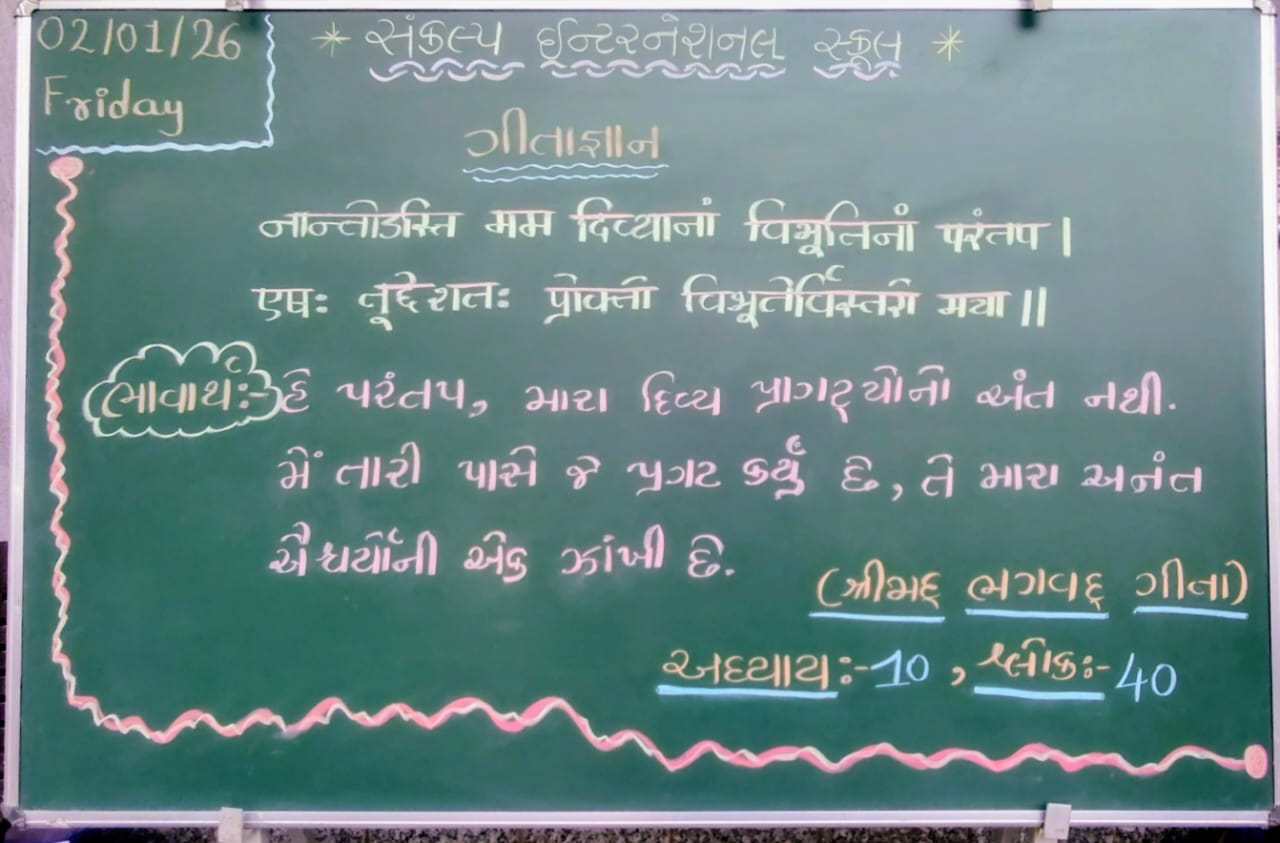 02/01/26
Friday
* સંકલ્પ ઈન્ટરનેશનલ સ્કૂલ *
ગીતાજ્ઞાન
नान्तोऽस्ति मम दिव्यानां विभूतिनां परंतप।
एषः तूद्देशतः प्रोक्तो विभूतेर्विस्तरो मया॥
ભાવાર્થ:- હે પરંતપ, મારા દિવ્ય પ્રાગટ્યોનો અંત નથી.
મેં તારી પાસે જે પ્રગટ કર્યું છે, તે મારા અનંત
ઐશ્વર્યોની એક ઝાંખી છે.
(શ્રીમદ્ ભગવદ્ ગીતા)
અધ્યાય:- 10, શ્લોક:- 40